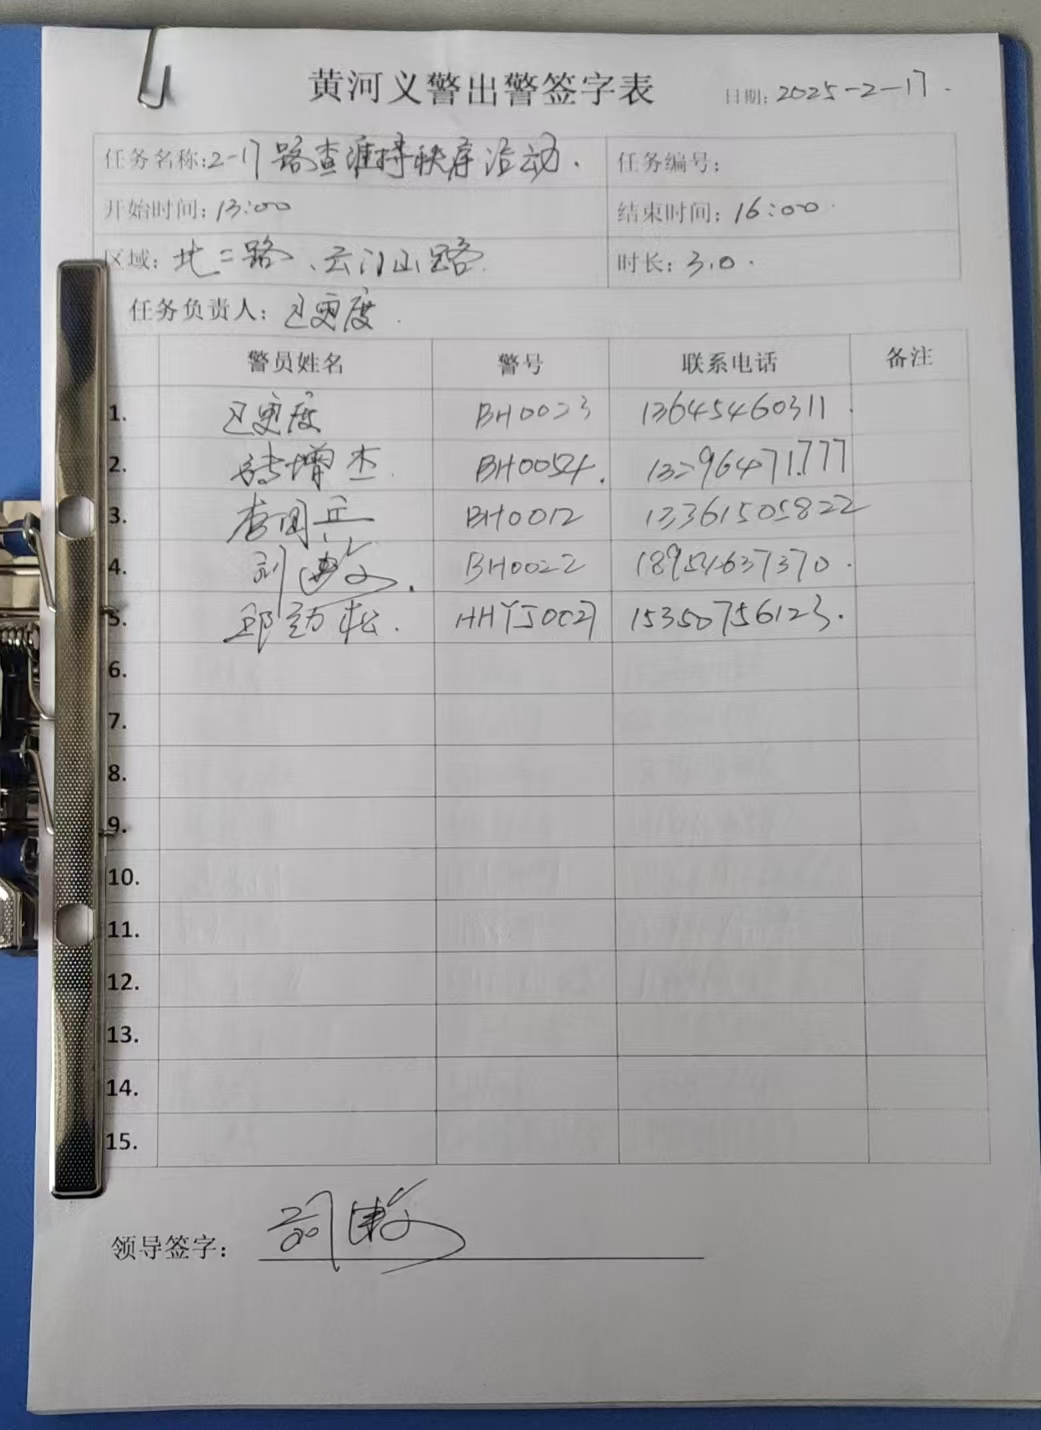 黄河义警出警签字表
日期: 2025-2-17.
任务名称: 2-17路查维持秩序活动. 任务编号:
开始时间: 13:00 结束时间: 16:00
区域: 北二路、云门山路 时长: 3.0.
任务负责人:
警员姓名 警号 联系电话 备注
1. BH0023 13645460311
2. 增杰 BH0054. 13296471777
3. BH0012 13361505822
4. 刘 BH0022 18954637370.
5. 邱劲松. HHYJ0027 15350756123.
6.
7.
8.
9.
10.
11.
12.
13.
14.
15.
领导签字: